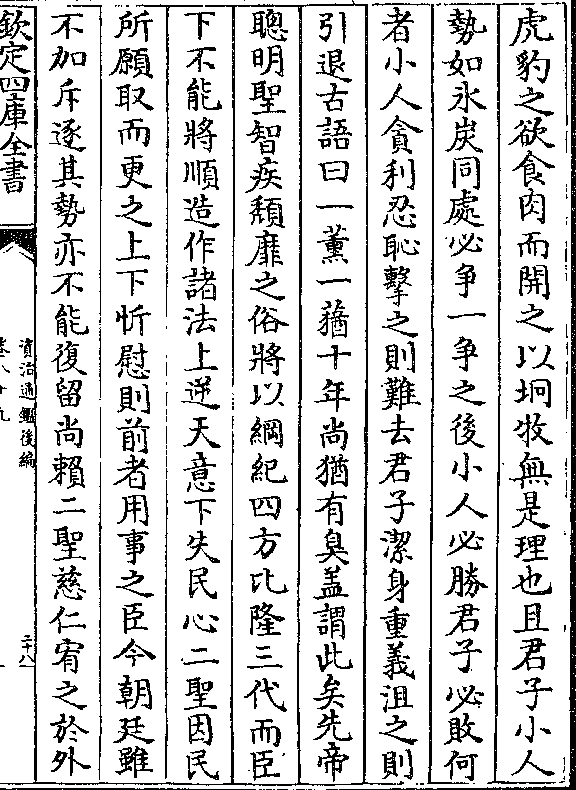 虎豹之欲食肉而開之以坰牧無是理也且君子小人
勢如氷炭同處必争一争之後小人必勝君子必敗何
者小人貪利忍恥擊之則難去君子潔身重義沮之則
引退古語曰一薰一蕕十年尚猶有臭盖謂此矣先帝
聰明聖智疾頽靡之俗將以綱紀四方比隆三代而臣
下不能將順造作諸法上逆天意下失民心二聖因民
所願取而更之上下忻慰則前者用事之臣今朝廷雖
不加斥逐其勢亦不能復留尚賴二聖慈仁宥之於外
欽定四庫全書
資治通鑑後編
卷八十九
二十八